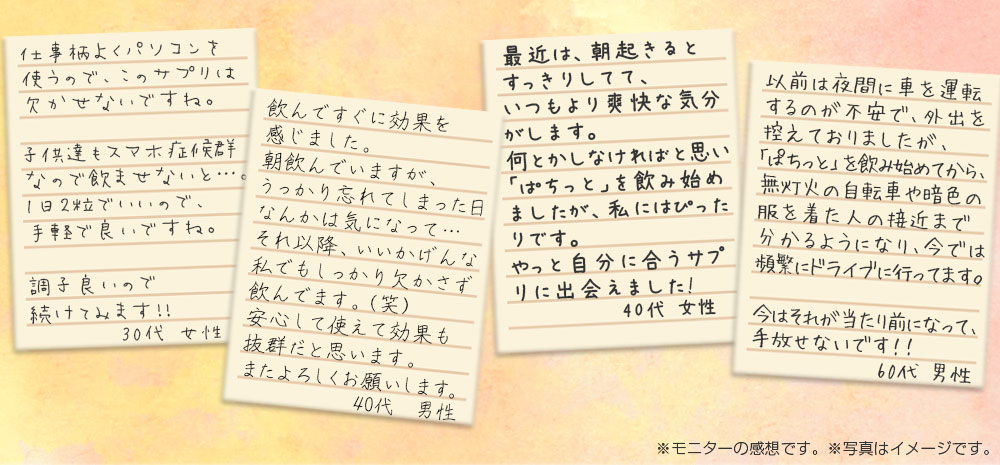 仕事柄よくパソコンを
使うので、このサプリは
欠かせないですね。
子供達もスマホ症候群
なので飲ませないと…。
1日2粒でいいので、
手軽で良いですね。
調子良いので
続けてみます!!
30代 女性
飲んですぐに効果を
感じました。
朝飲んでいますが、
うっかり忘れてしまった日
なんかは気になって…
それ以降、いいかげんな
私でもしっかり欠かさず
飲んでます。(笑)
安心して使えて効果も
抜群だと思います。
またよろしくお願いします。
40代 男性
最近は、朝起きると
すっきりしてて、
いつもより爽快な気分
がします。
何とかしなければと思い
「ぱちっと」を飲み始め
ましたが、私にはぴった
りです。
やっと自分に合うサプ
リに出会えました!
40代 女性
以前は夜間に車を運転
するのが不安で、外出を
控えておりましたが、
「ぱちっと」を飲み始めてから、
無灯火の自転車や暗色の
服を着た人の接近まで
分かるようになり、今では
頻繁にドライブに行ってます。
今はそれが当たり前になって、
手放せないです!!
60代 男性
※モニターの感想です。※写真はイメージです。